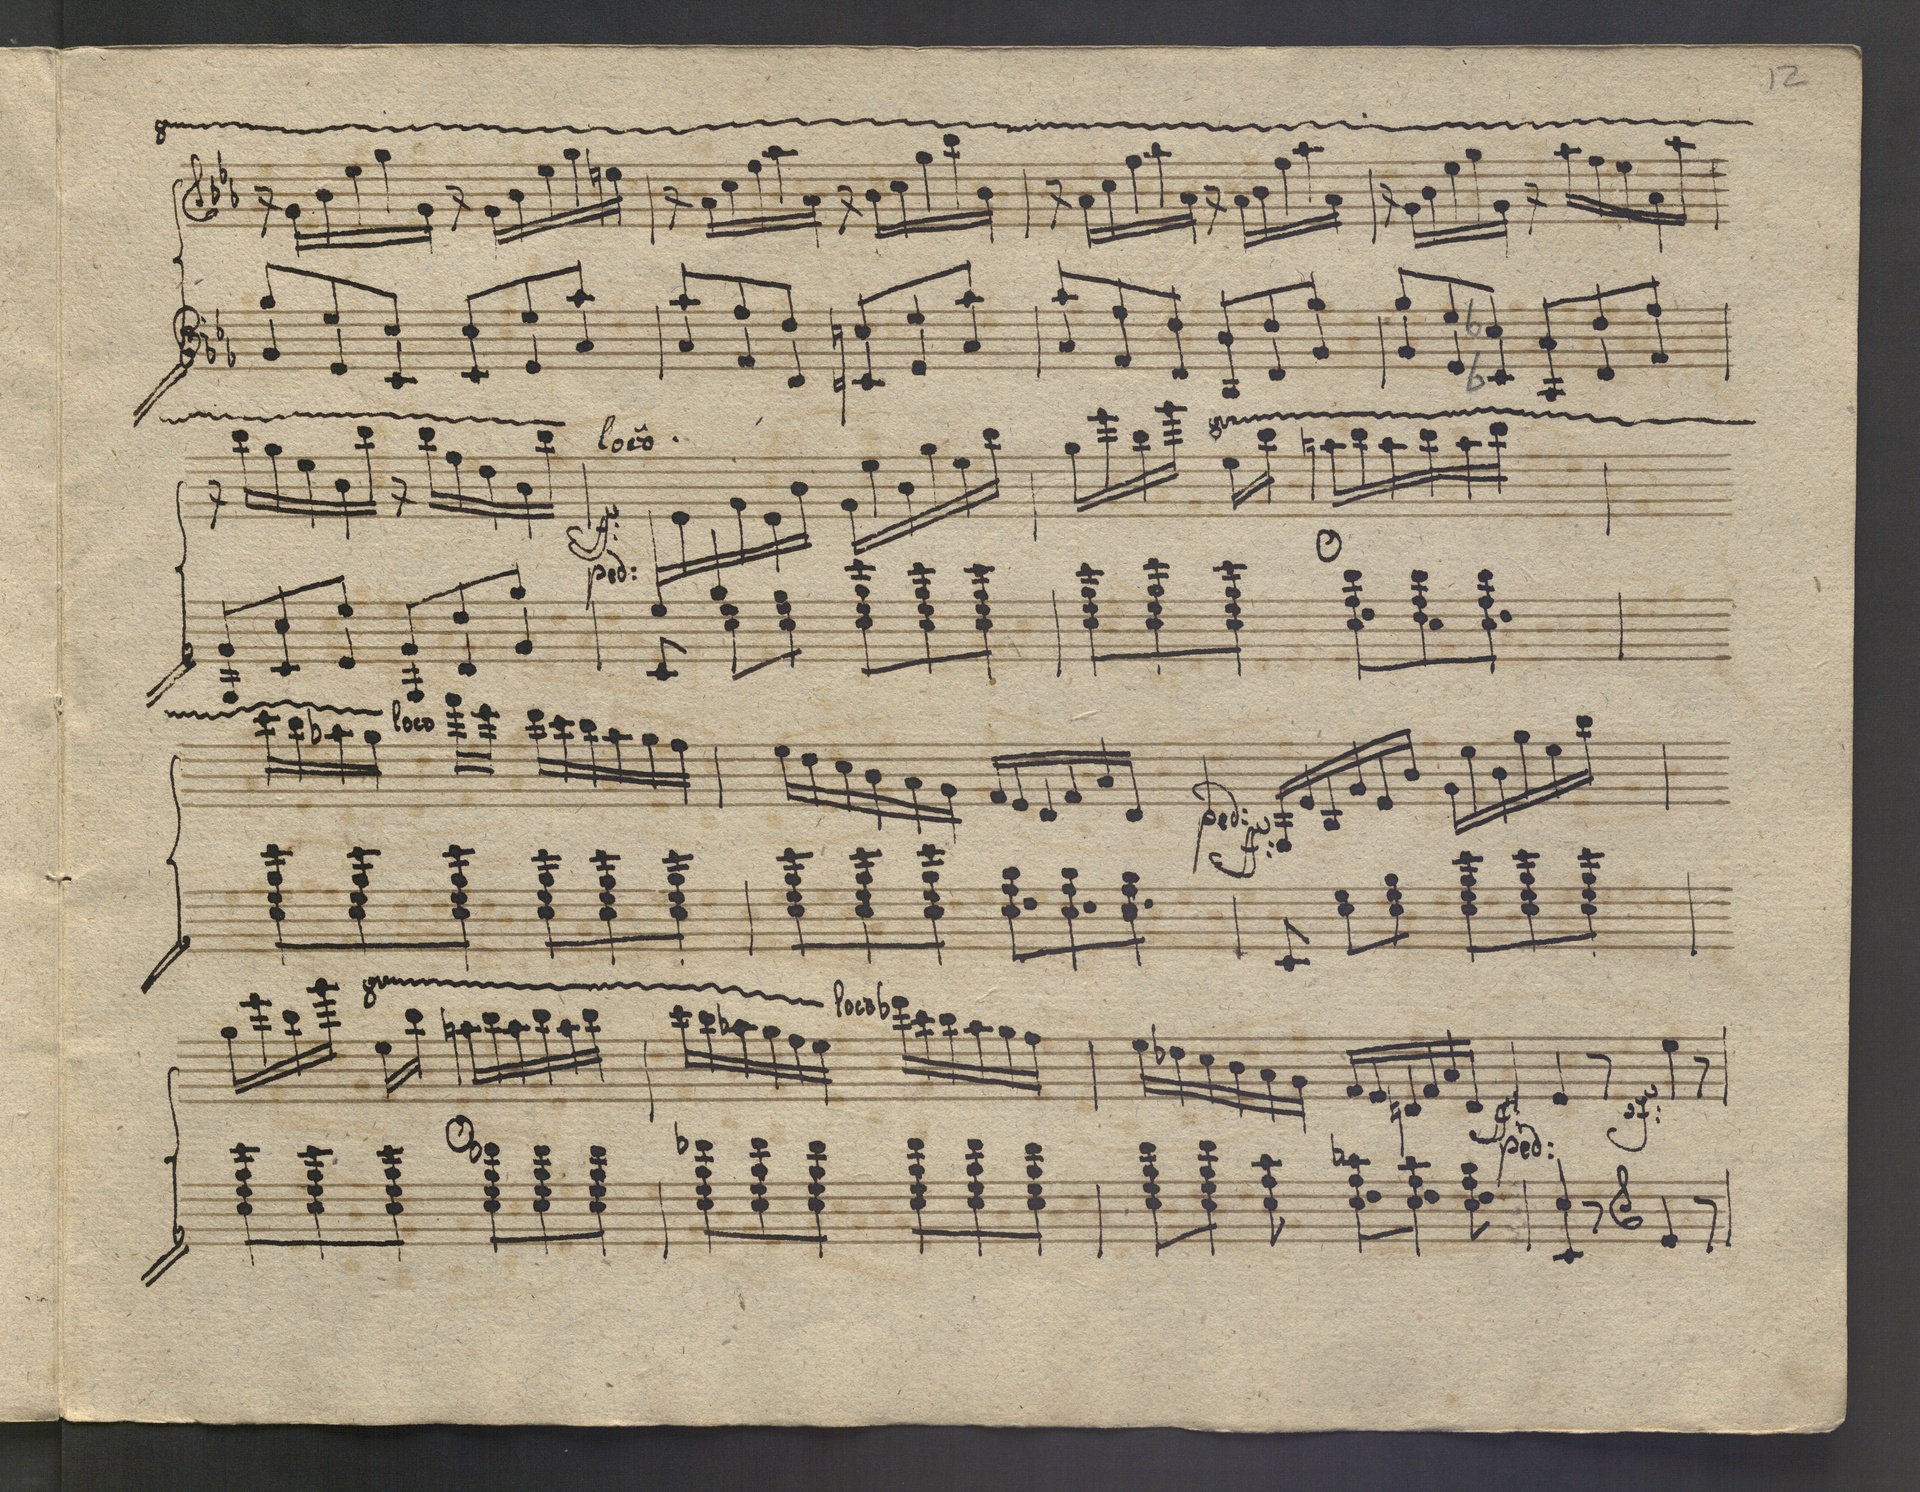 12
8
loco.
ff:
ped:
8
loco
ped:
ff:
8
loco
ff:
ped:
sf: